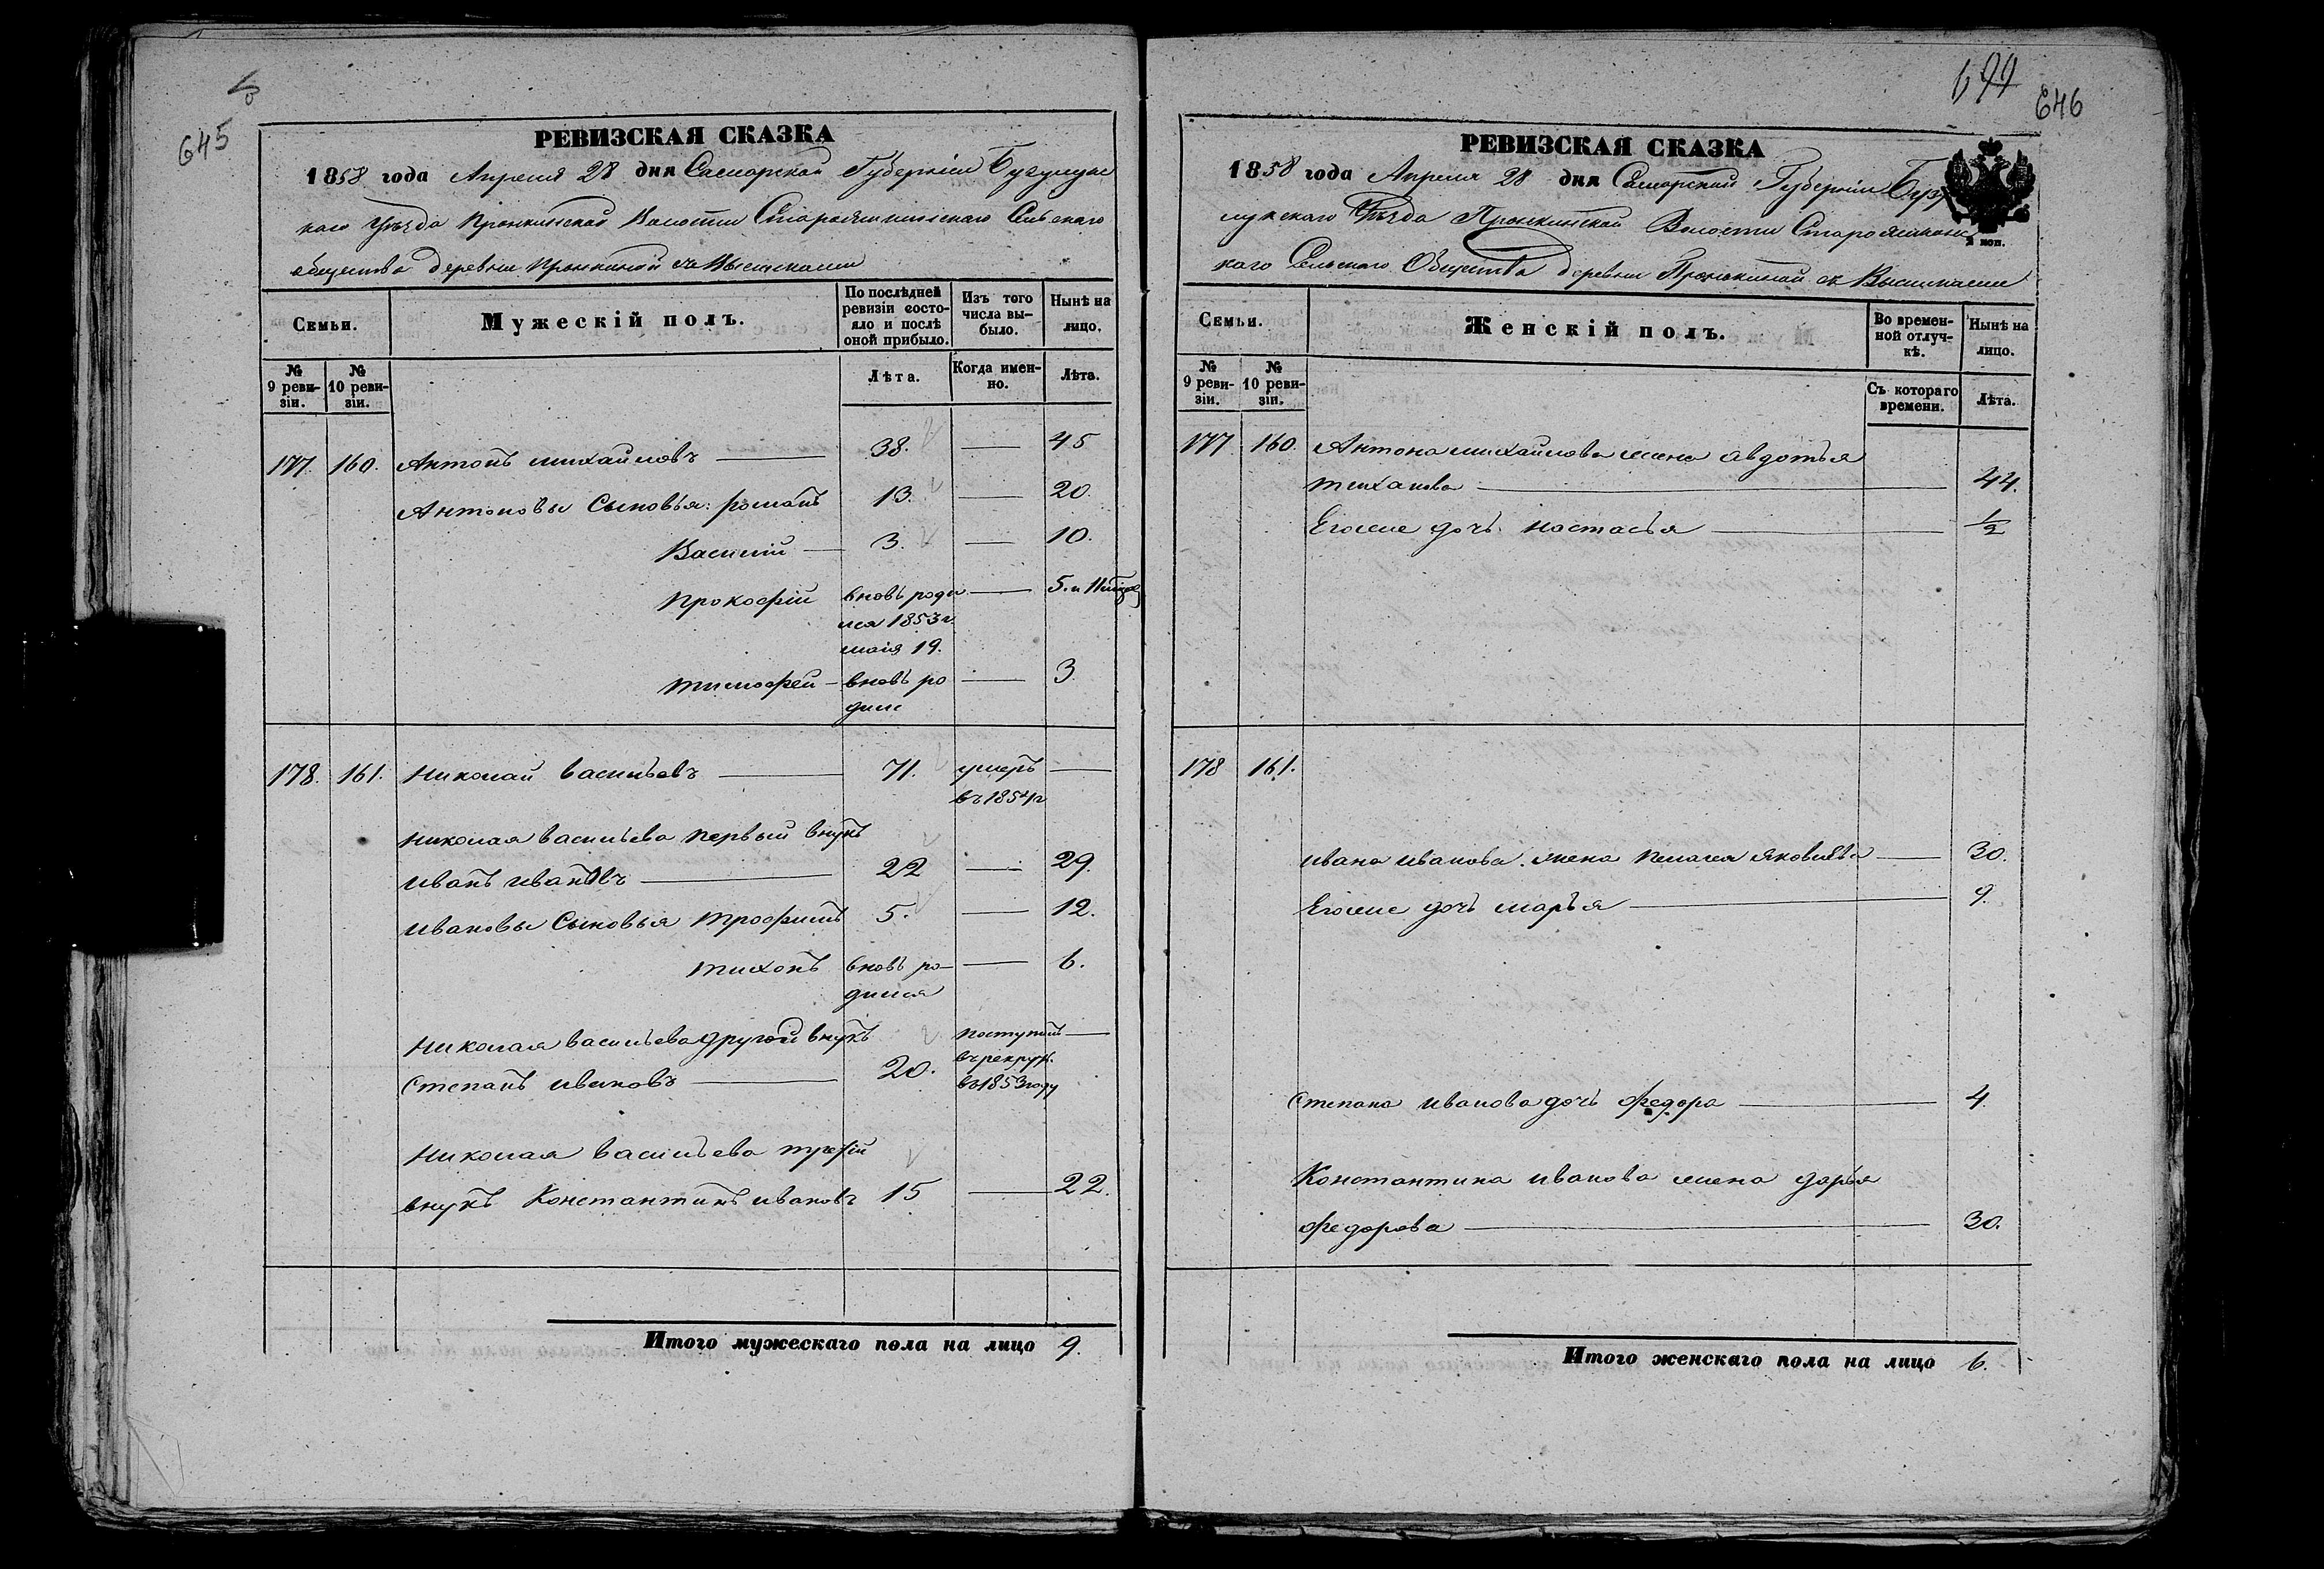 645
РЕВИЗСКАЯ СКАЗКА
1858 года Апреля 28 дня Самарской Губерніи Бугулус
каго Уѣзда Пронкинской Волости Староямкинскаго Сельскаго
общества деревни Пронкиной съ Высилками
Семьи.
Мужескій полъ.
По послѣдней ревизіи состояло и послѣ оной прибыло.
Изъ того числа выбыло.
Нынѣ на лицо.
№ 9 ревизіи.
№ 10 ревизіи.
Лѣта.
Когда именно.
Лѣта.
177. 160. Антонъ михайловъ 38. — 45
Антоновы Сыновья: романъ 13. — 20.
Василій — 3. — 10.
Прокофій вновь роди — 5. и 11
лся 1853 г.
маія 19.
тимофей — вновь ро — 3
дилс
178. 161. Николай васильевъ 71. умеръ —
въ 1854 г
Николая васильева первый внукъ
иванъ ивановъ 22 — 29.
ивановы Сыновья трофимъ 5. — 12.
тихонъ вновь ро — 6.
дился
Николая васильева другой внукъ поступилъ —
Степанъ ивановъ 20. въ рекрут.
въ 1853 году
Николая васильева третій
внукъ Константинъ ивановъ 15 — 22.
Итого мужескаго пола на лицо 9.
646
РЕВИЗСКАЯ СКАЗКА
1858 года Апреля 28 дня Самарской Губерніи Бузу
лукскаго Уѣзда Пронкинской Волости Староямкинс
каго Сельскаго Общества деревни Пронькиной съ Высилками
коп.
Семьи.
Женскій полъ.
Во временной отлучкѣ.
Нынѣ на лицо.
№ 9 ревизіи.
№ 10 ревизіи.
Съ котораго времени.
Лѣта.
177 160. Антона михайлова жена авдотья
тиханова 44.
Егоже дочь настасья ½
178 161.
ивана иванова жена пелагея яковлева 30.
Егоже дочь марья 9.
Степана иванова дочь федора 4.
Константина иванова жена дарья
федорова 30.
Итого женскаго пола на лицо 6.